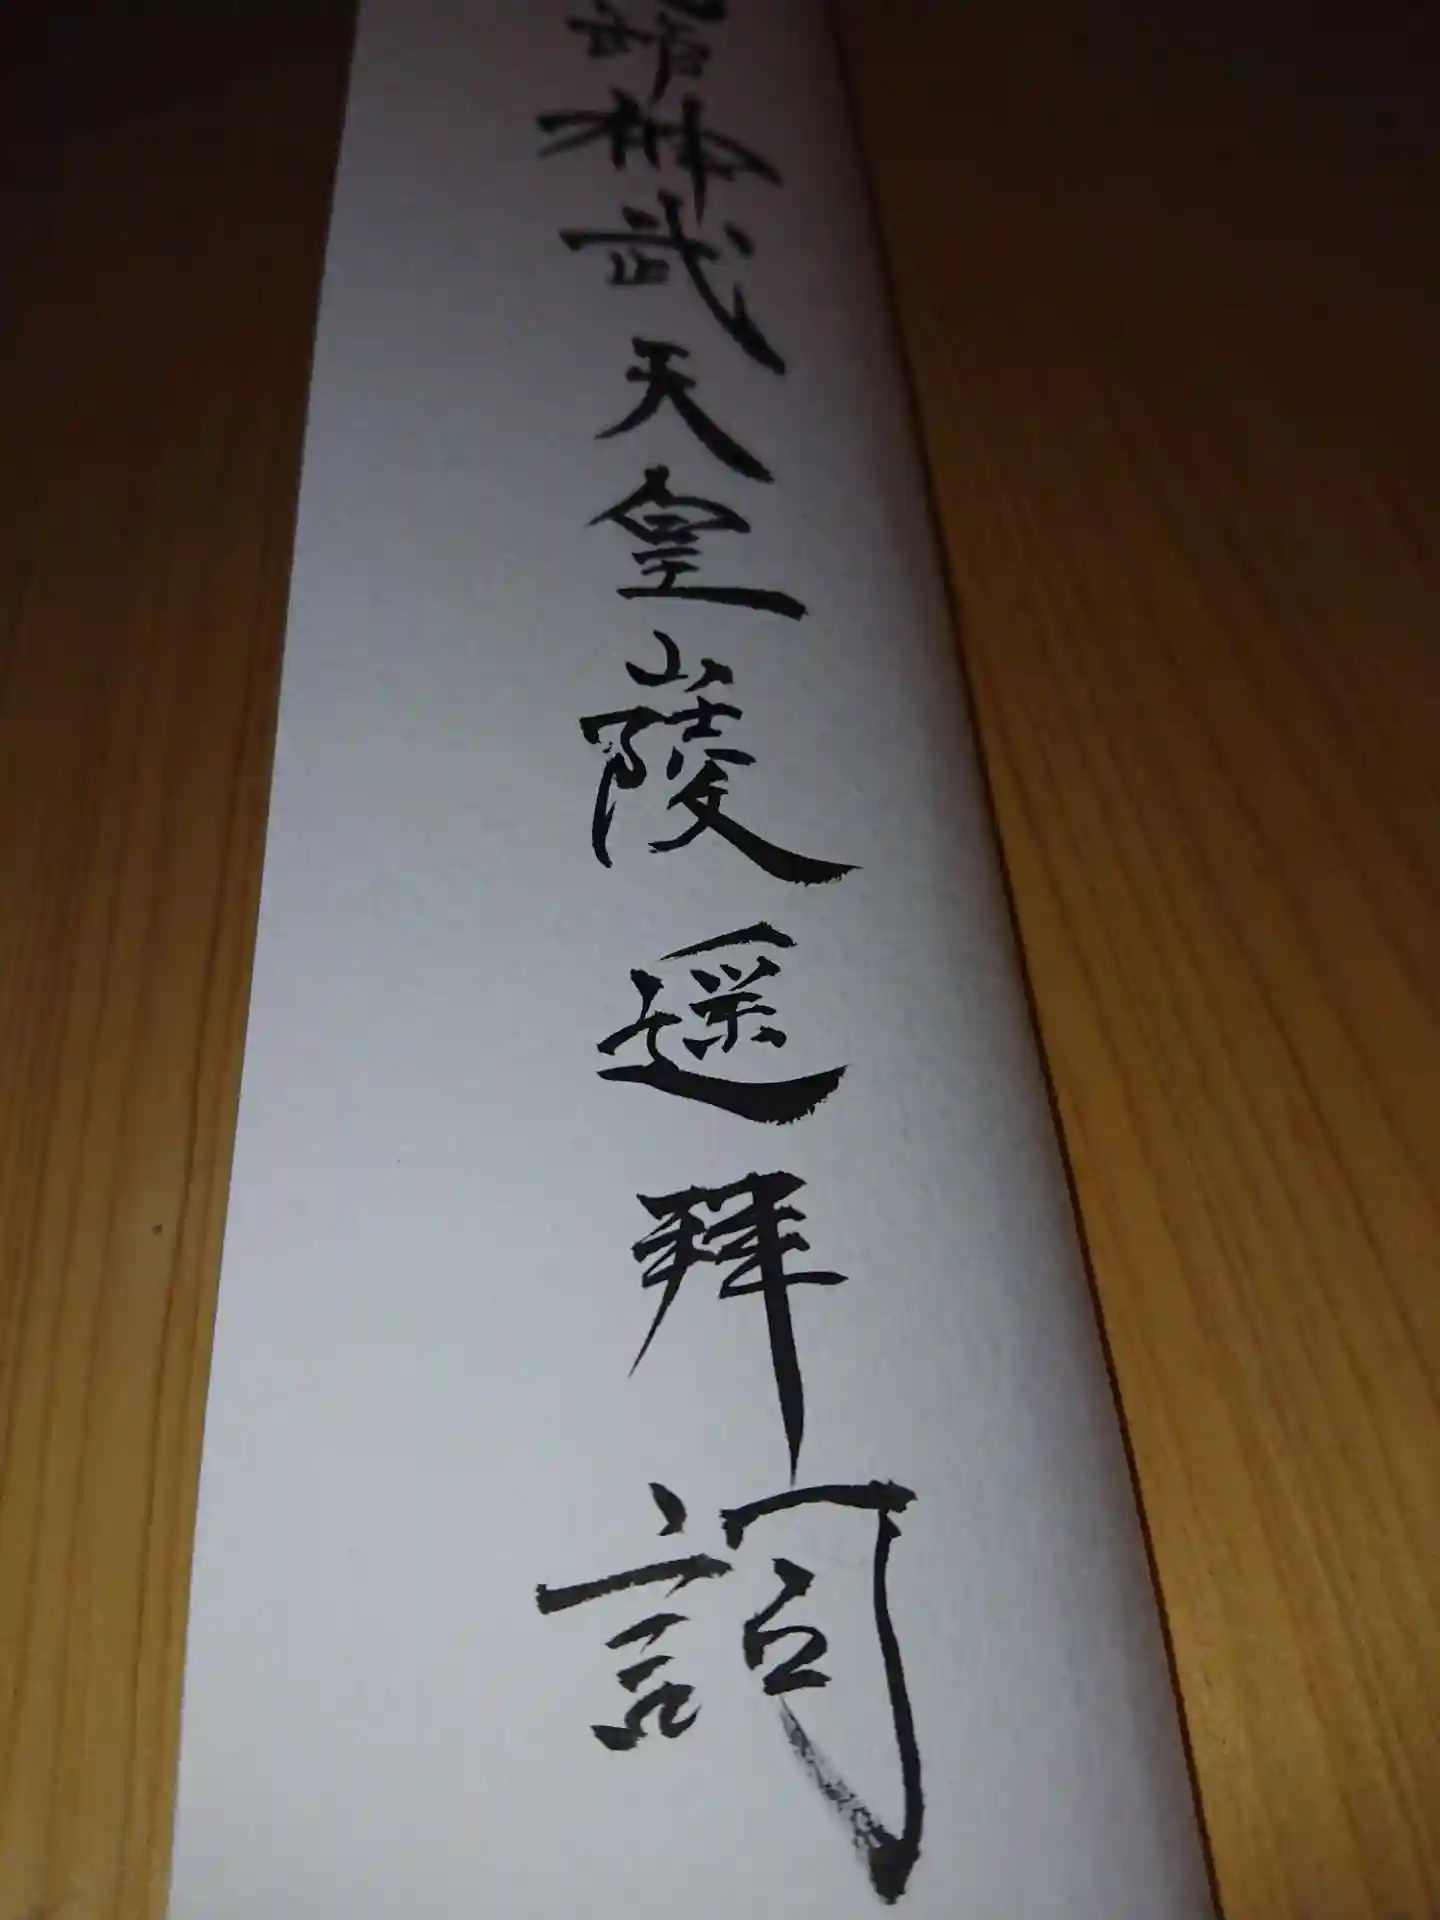 神武天皇山陵遥拜詞